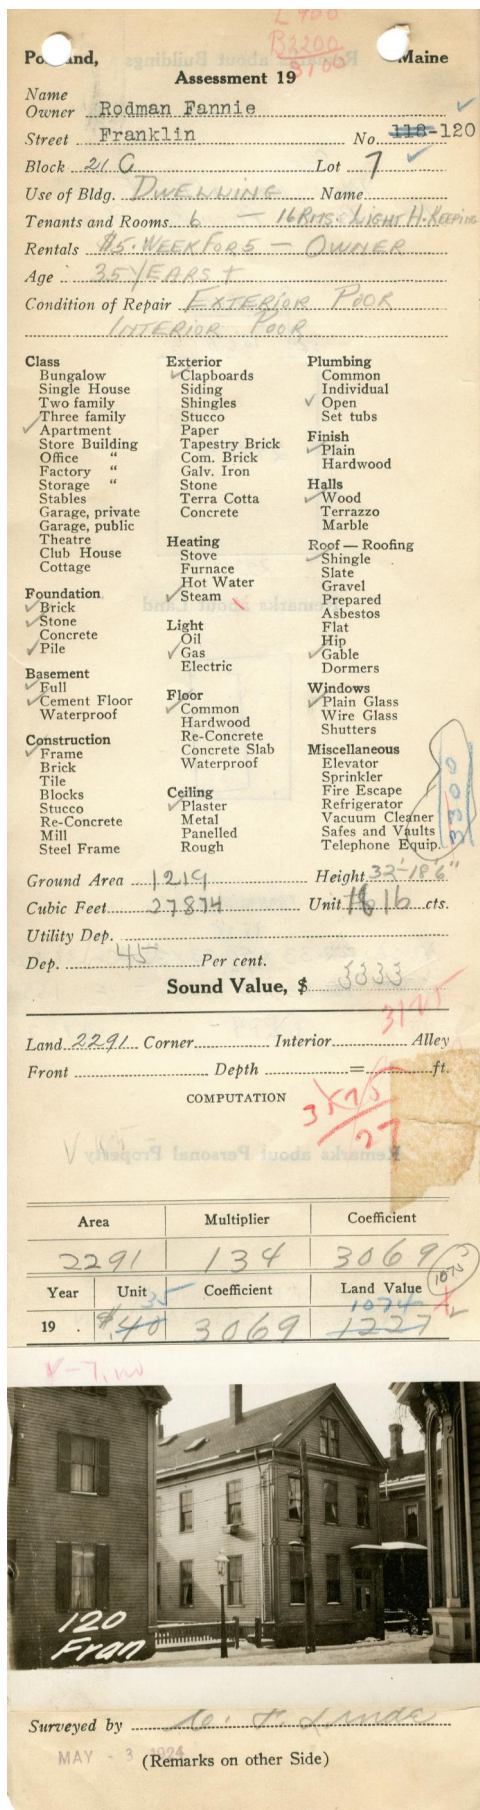 L 900
B 2200
3100
Portland, Maine
Assessment 19
Name
Owner Rodman Fannie
Street Franklin No. 118-120
Block 21 C Lot 7
Use of Bldg. DWELLING Name
Tenants and Rooms 6 — 16 RMS. LIGHT H. KEEPING
Rentals $5. WEEK FOR 5 — OWNER
Age 35 YEARS +
Condition of Repair EXTERIOR POOR
INTERIOR POOR
Class
Bungalow
Single House
Two family
Three family
Apartment
Store Building
Office "
Factory "
Storage "
Stables
Garage, private
Garage, public
Theatre
Club House
Cottage
Foundation
Brick
Stone
Concrete
Pile
Basement
Full
Cement Floor
Waterproof
Construction
Frame
Brick
Tile
Blocks
Stucco
Re-Concrete
Mill
Steel Frame
Exterior
Clapboards
Siding
Shingles
Stucco
Paper
Tapestry Brick
Com. Brick
Galv. Iron
Stone
Terra Cotta
Concrete
Heating
Stove
Furnace
Hot Water
Steam
Light
Oil
Gas
Electric
Floor
Common
Hardwood
Re-Concrete
Concrete Slab
Waterproof
Ceiling
Plaster
Metal
Panelled
Rough
Plumbing
Common
Individual
Open
Set tubs
Finish
Plain
Hardwood
Halls
Wood
Terrazzo
Marble
Roof — Roofing
Shingle
Slate
Gravel
Prepared
Asbestos
Flat
Hip
Gable
Dormers
Windows
Plain Glass
Wire Glass
Shutters
Miscellaneous
Elevator
Sprinkler
Fire Escape
Refrigerator
Vacuum Cleaner
Safes and Vaults
Telephone Equip.
3300
Ground Area 1219 Height 32'-18'6"
Cubic Feet 27874 Unit 16 cts.
Utility Dep.
Dep. 45 Per cent.
Sound Value, $ 3333
3125
Land 2291 Corner Interior Alley
Front Depth = ft.
COMPUTATION
27
Area Multiplier Coefficient
2291 134 3069
1075
Year Unit Coefficient Land Value
35 1074
19 $.40 3069 1227
120
Fran
Surveyed by
MAY - 3 1924
(Remarks on other Side)